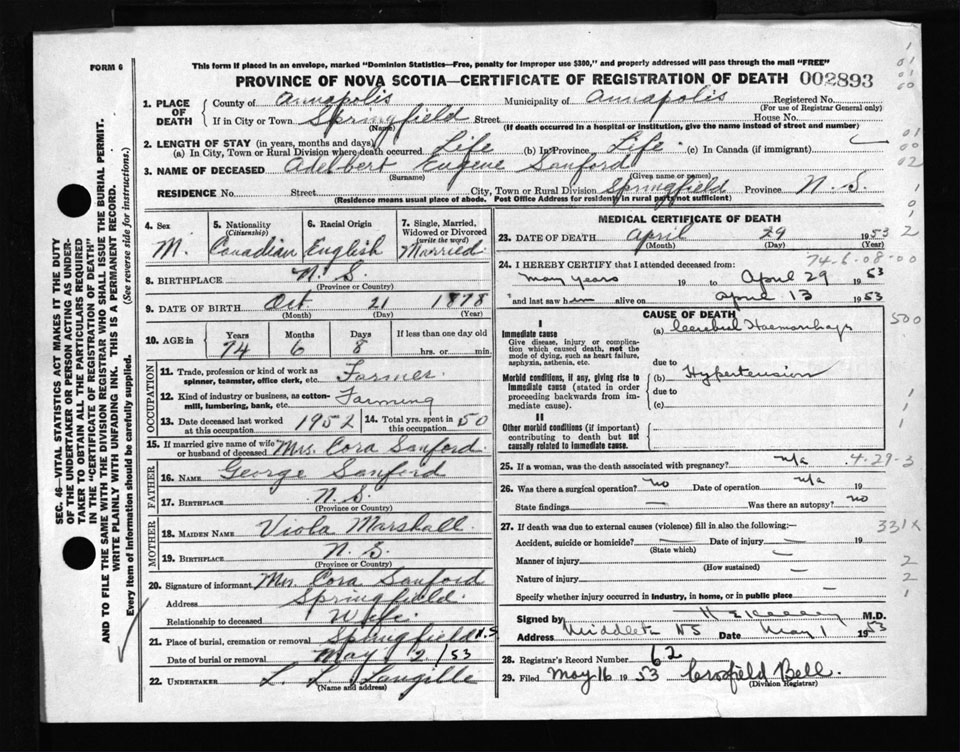 This form if placed in an envelope, marked "Dominion Statistics—Free, penalty for improper use $300," and properly addressed will pass through the mail "FREE"
FORM 6
PROVINCE OF NOVA SCOTIA—CERTIFICATE OF REGISTRATION OF DEATH 002893
1. PLACE OF DEATH
County of Annapolis Municipality of Annapolis Registered No.
(For use of Registrar General only)
If in City or Town Springfield Street House No.
(Name) (If death occurred in a hospital or institution, give the name instead of street and number)
2. LENGTH OF STAY (in years, months and days)
(a) In City, Town or Rural Division where death occurred Life (b) In Province Life (c) In Canada (if immigrant)
3. NAME OF DECEASED Adelbert Eugene Sanford
(Surname) (Given name or names)
RESIDENCE No. Street City, Town or Rural Division Springfield Province N.S.
(Residence means usual place of abode. Post Office Address for residents in rural parts not sufficient)
4. Sex
M.
5. Nationality
(Citizenship)
Canadian
6. Racial Origin
English
7. Single, Married, Widowed or Divorced
(write the word)
Married
8. BIRTHPLACE N.S.
(Province or Country)
9. DATE OF BIRTH Oct 21 1878
(Month) (Day) (Year)
10. AGE in
Years Months Days If less than one day old
74 6 8 hrs. or min.
OCCUPATION
11. Trade, profession or kind of work as spinner, teamster, office clerk, etc. Farmer
12. Kind of industry or business, as cotton-mill, lumbering, bank, etc. Farming
13. Date deceased last worked at this occupation 1952
14. Total yrs. spent in this occupation 50
15. If married give name of wife or husband of deceased Mrs. Cora Sanford
FATHER
16. NAME George Sanford
17. BIRTHPLACE N.S.
(Province or Country)
MOTHER
18. MAIDEN NAME Viola Marshall
19. BIRTHPLACE N.S.
(Province or Country)
20. Signature of informant Mrs. Cora Sanford
Address Springfield
Relationship to deceased Wife
21. Place of burial, cremation or removal Springfield N.S
Date of burial or removal May 2/53
22. UNDERTAKER L. L. Langille
(Name and address)
MEDICAL CERTIFICATE OF DEATH
23. DATE OF DEATH April 29 1953
(Month) (Day) (Year)
74-6-08-00
24. I HEREBY CERTIFY that I attended deceased from:
many years 19 to April 29 1953
and last saw him alive on April 13 1953
CAUSE OF DEATH
I
Immediate cause
Give disease, injury or complication which caused death, not the mode of dying, such as heart failure, asphyxia, asthenia, etc.
(a) Cerebral Haemorrhage
due to
Morbid conditions, if any, giving rise to immediate cause (stated in order proceeding backwards from immediate cause).
(b) Hypertension
due to
(c)
II
Other morbid conditions (if important) contributing to death but not causally related to immediate cause.
500
25. If a woman, was the death associated with pregnancy? n/a
4-29-3
26. Was there a surgical operation? no Date of operation n/a 19
State findings Was there an autopsy? no
27. If death was due to external causes (violence) fill in also the following:—
331X
Accident, suicide or homicide? Date of injury 19
(State which)
Manner of injury
(How sustained)
Nature of injury
Specify whether injury occurred in industry, in home, or in public place
Signed by M.D.
Address Middleton NS Date May 1 1953
28. Registrar's Record Number 62
29. Filed May 16 1953 Bell.
(Division Registrar)
SEC. 46—VITAL STATISTICS ACT MAKES IT THE DUTY
OF THE UNDERTAKER OR PERSON ACTING AS UNDER-
TAKER TO OBTAIN ALL THE PARTICULARS REQUIRED
IN THE "CERTIFICATE OF REGISTRATION OF DEATH"
AND TO FILE THE SAME WITH THE DIVISION REGISTRAR WHO SHALL ISSUE THE BURIAL PERMIT.
WRITE PLAINLY WITH UNFADING INK. THIS IS A PERMANENT RECORD.
Every item of information should be carefully supplied. (See reverse side for instructions.)